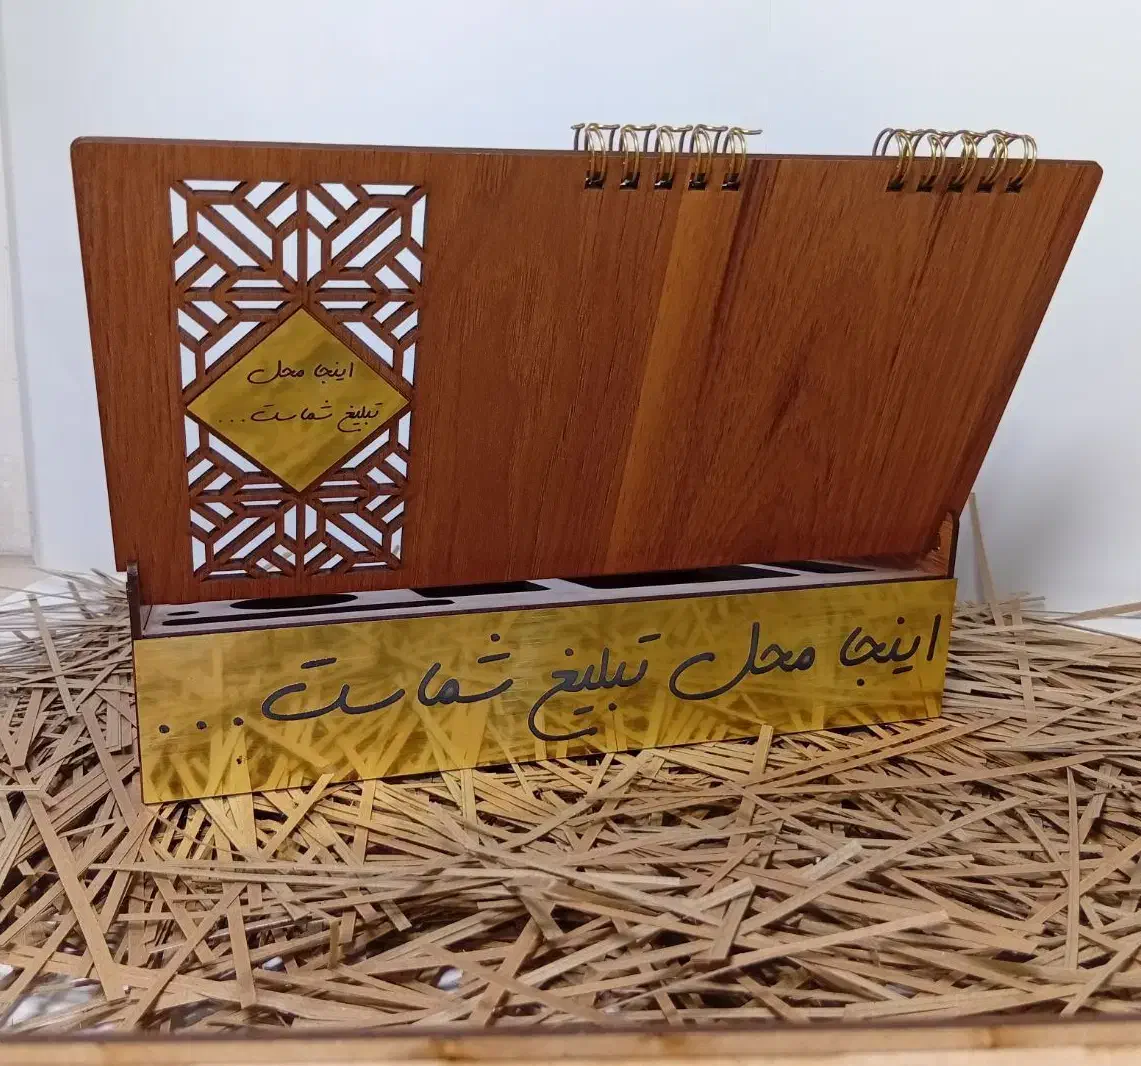 اینجا محل
تبلیغ شماست...
اینجا محل تبلیغ شماست...